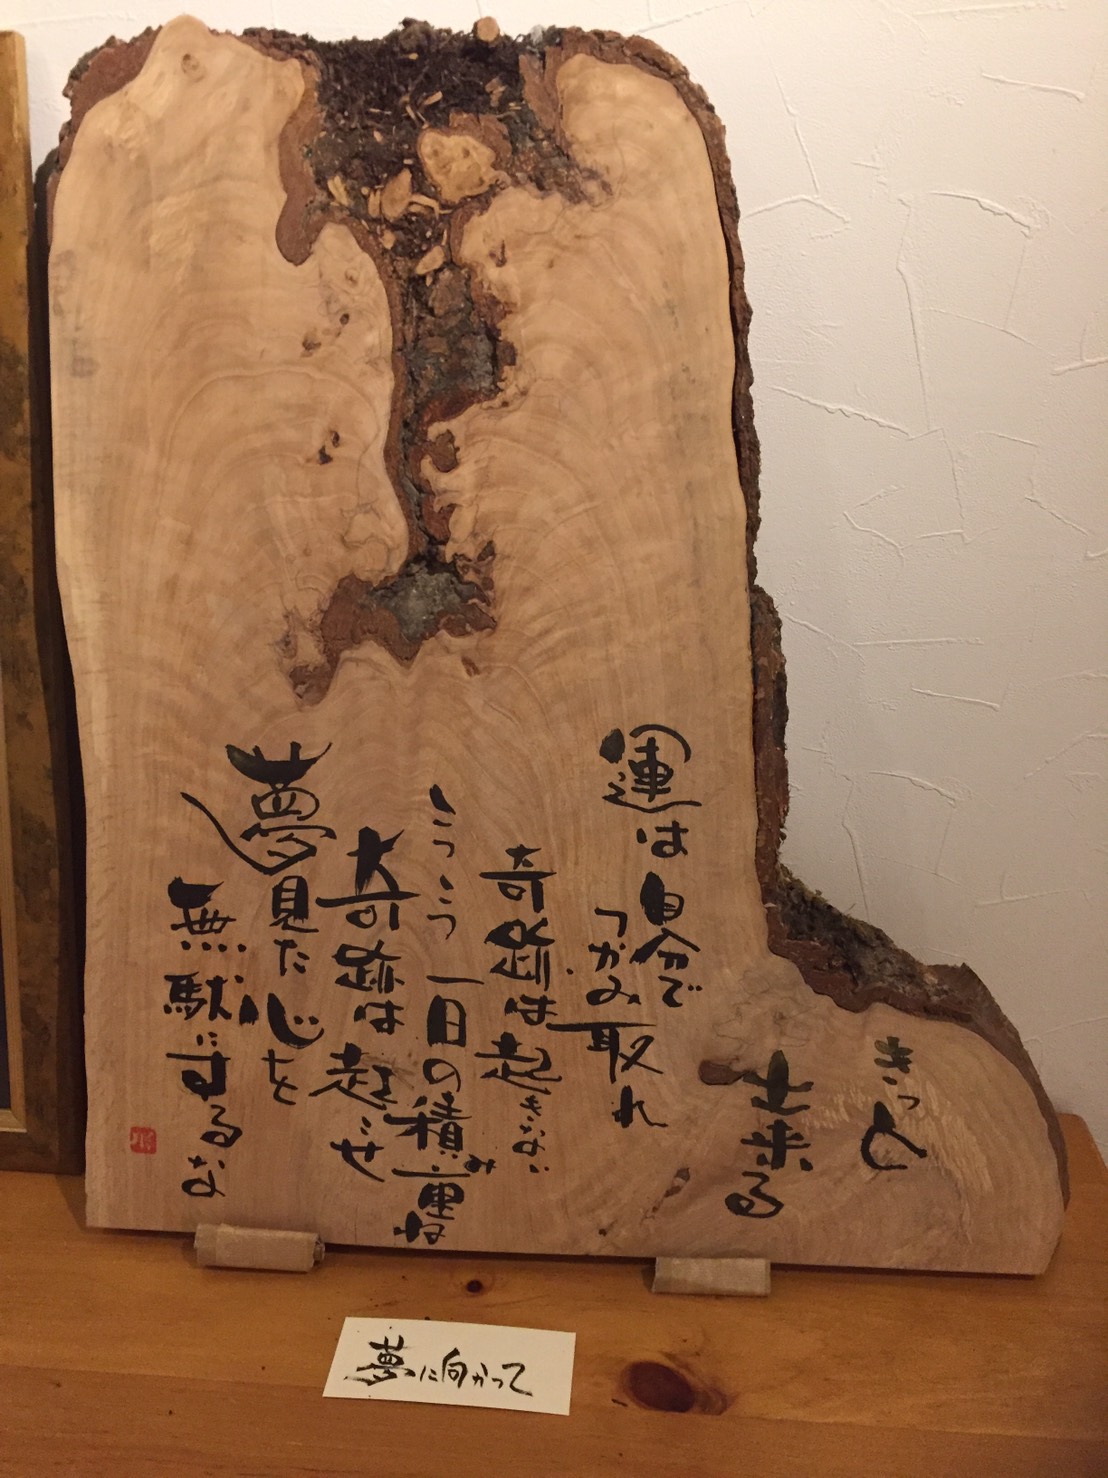 きっと
出来る
運は自分で
つかみ取れ
奇跡は起きない
こつこつ一日の積み重ね
奇跡は起こせ
夢見た心を
無駄にするな
夢に向かって